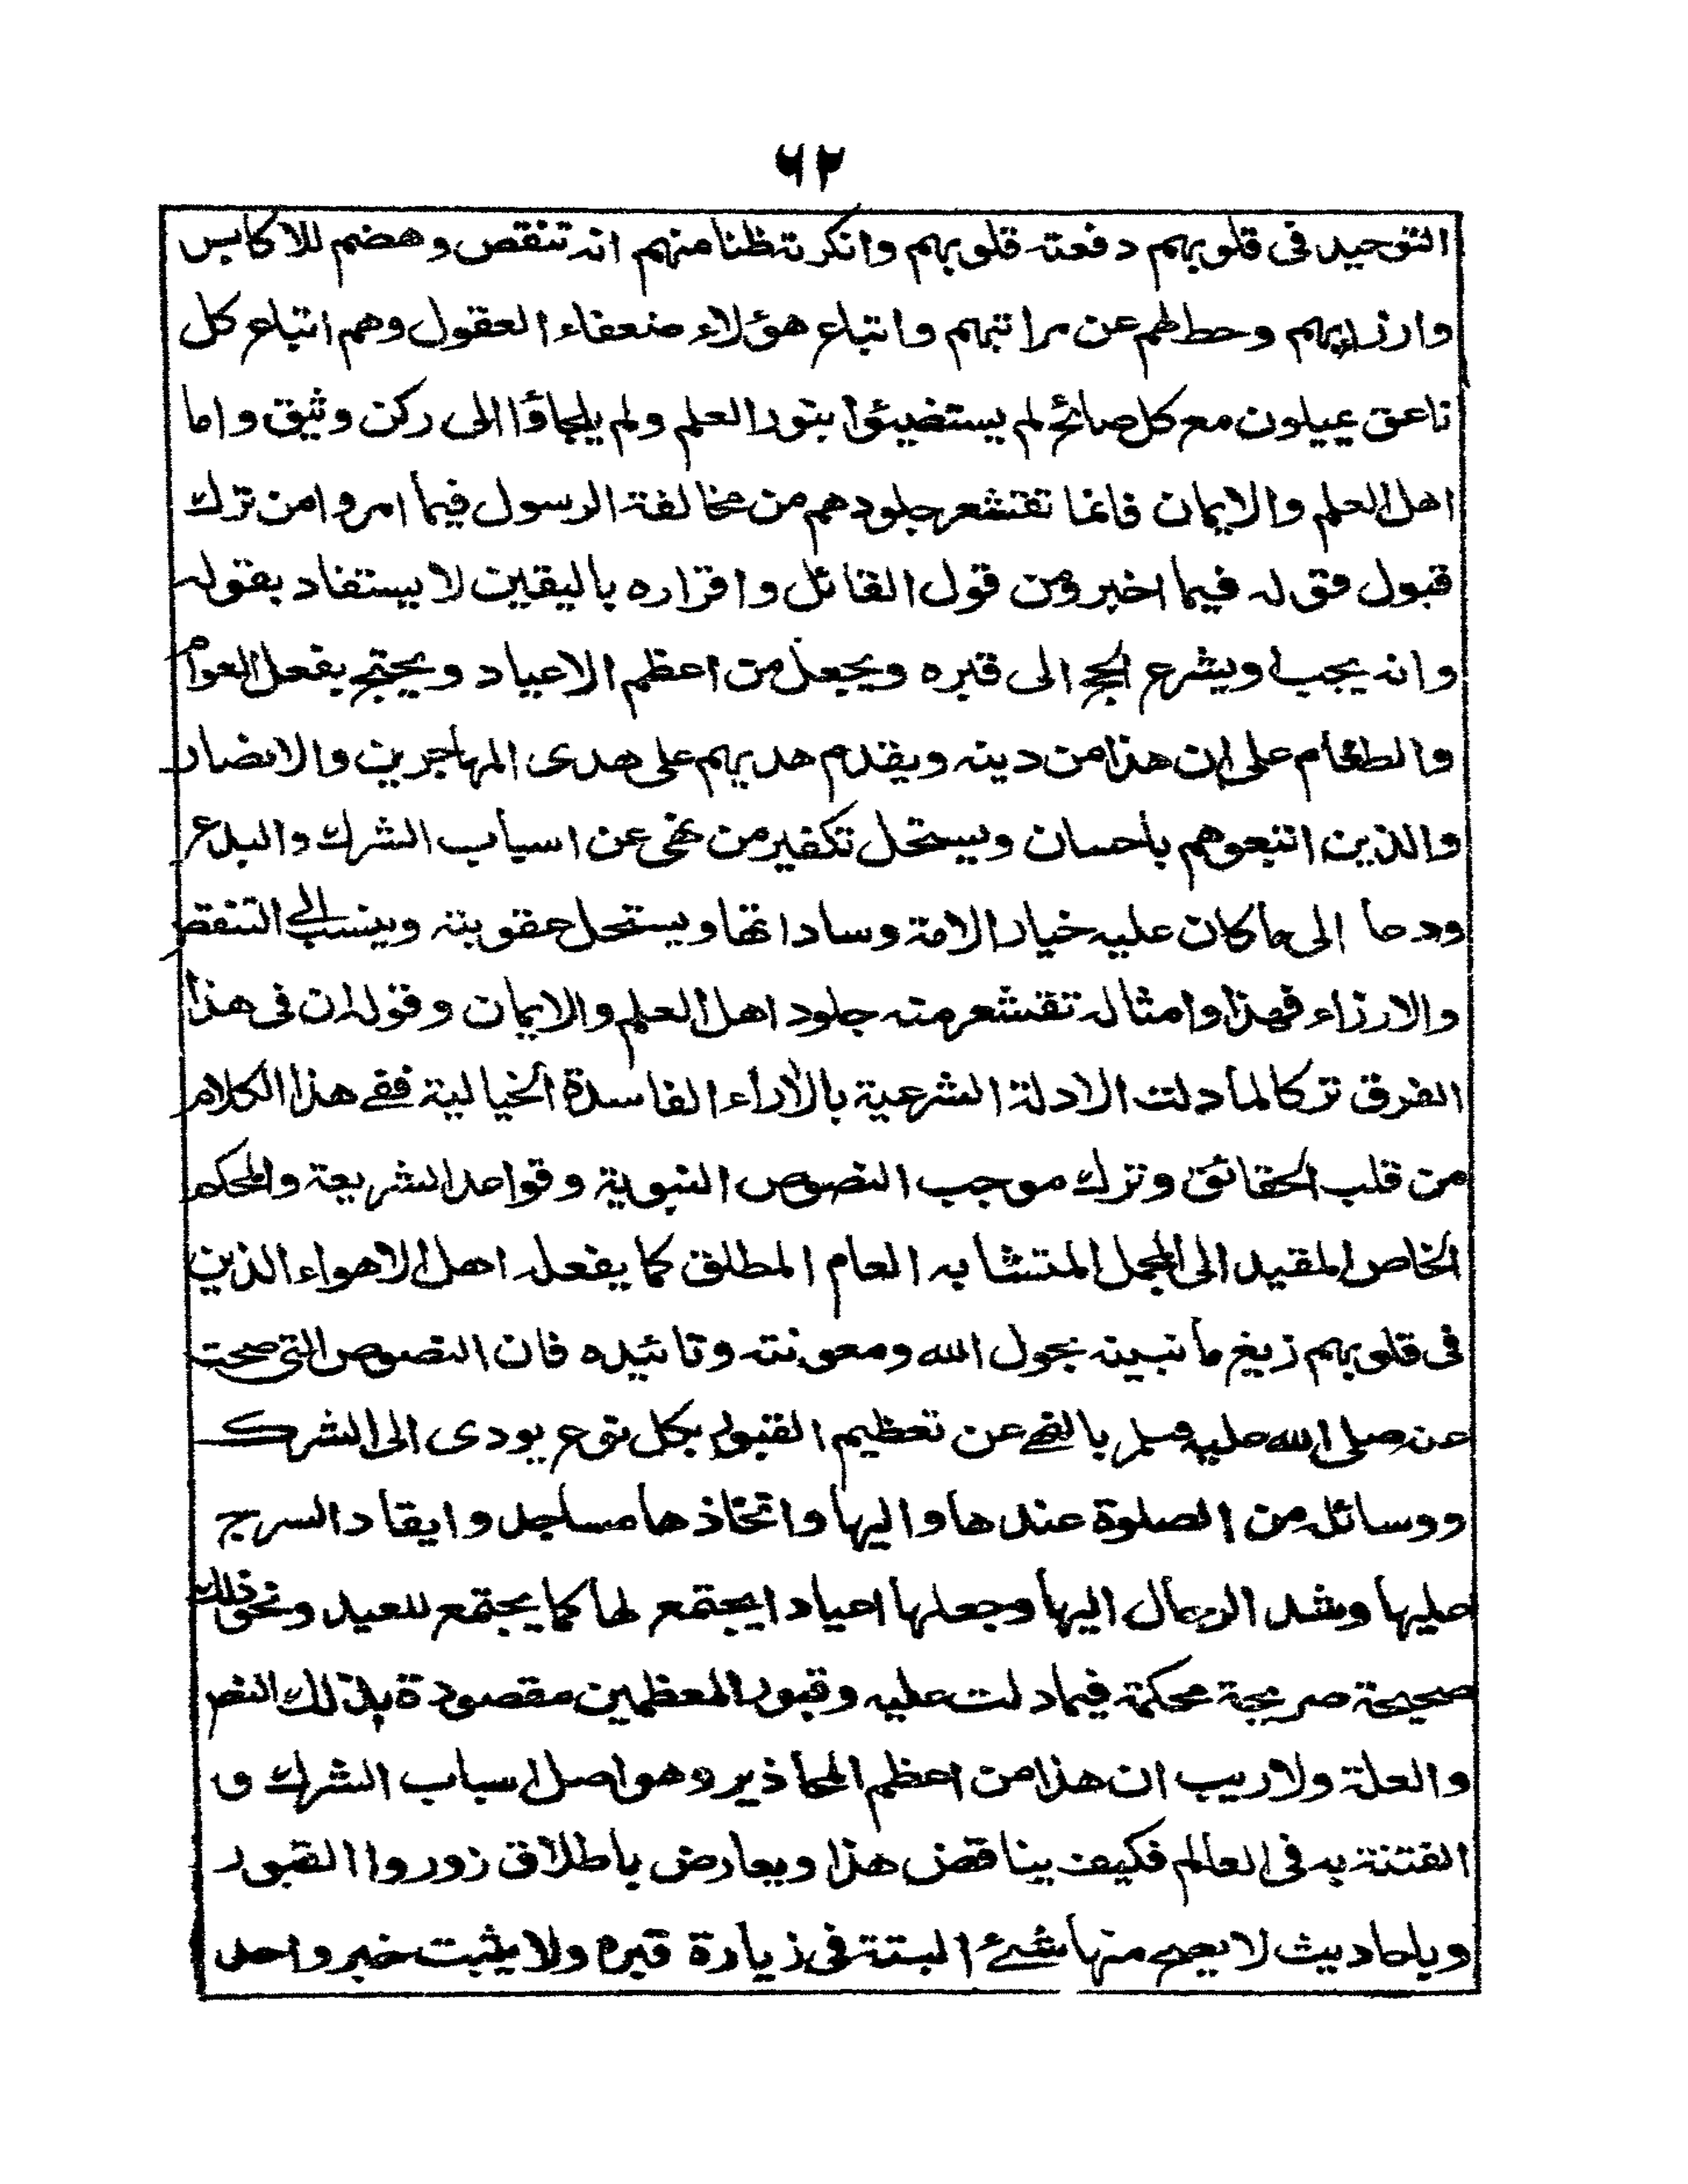 ٦٢
التوحيد فى قلوبهم دفعته قلوبهم وانكرته ظنا منهم انه تنقص وهضم للاكابر
وارزابهم وحط لهم عن مراتبهم واتباع هؤلاء ضعفاء العقول وهم اتباع كل
ناعق يميلون مع كل صائح لم يستضيئوا بنور العلم ولم يلجاؤا الى ركن وثيق واما
اهل العلم والايمان فانما تقشعر جلودهم من مخالفة الرسول فيما امر وامن ترك
قبول قوله فيما اخبر ومن قول القائل واقراره باليقين لا يستفاد بقوله
وانه يجب او يشرع الحج الى قبره ويجعل من اعظم الاعياد ويحتج بفعل العوام
والطغام على ان هذا من دينه ويقدم هديهم على هدى المهاجرين والانصار
والذين اتبعوهم باحسان ويستحل تكفير من نهى عن اسباب الشرك والبدع
ودعا الى ما كان عليه خيار الامة وساداتها ويستحل عقوبته وينسب الى التنقص
والارزاء فهذا وامثاله تقشعر منه جلود اهل العلم والايمان وقوله ان فى هذا
الفرق تركا لما دلت الادلة الشرعية بالاراء الفاسدة الخيالية ففى هذا الكلام
من قلب الحقائق وترك موجب النصوص النبوية وقواعد الشريعة والمحكم
الخاص المقيد الى المجمل المتشابه العام المطلق كما يفعله اهل الاهواء الذين
فى قلوبهم زيغ ما نبينه بحول الله ومعونته وتائيده فان النصوص التى صحت
عنه صلى الله عليه وسلم بالنهى عن تعظيم القبور بكل نوع يودى الى الشرك
ووسائله من الصلوة عندها واليها واتخاذها مساجد وايقاد السرج
عليها وشد الرحال اليها وجعلها اعيادا يجتمع لها كما يجتمع للعيد ونحو ذلك
صحيحة صريحة محكمة فيما دلت عليه وقبور المعظمين مقصودة بذلك النص
والعلة ولا ريب ان هذا من اعظم المحاذير وهو اصل اسباب الشرك و
الفتنة به فى العالم فكيف يناقض هذا ويعارض باطلاق زوروا القبور
وباحاديث لا يصح منها شئ البتة فى زيارة قبره ولا يثبت خبر واحد